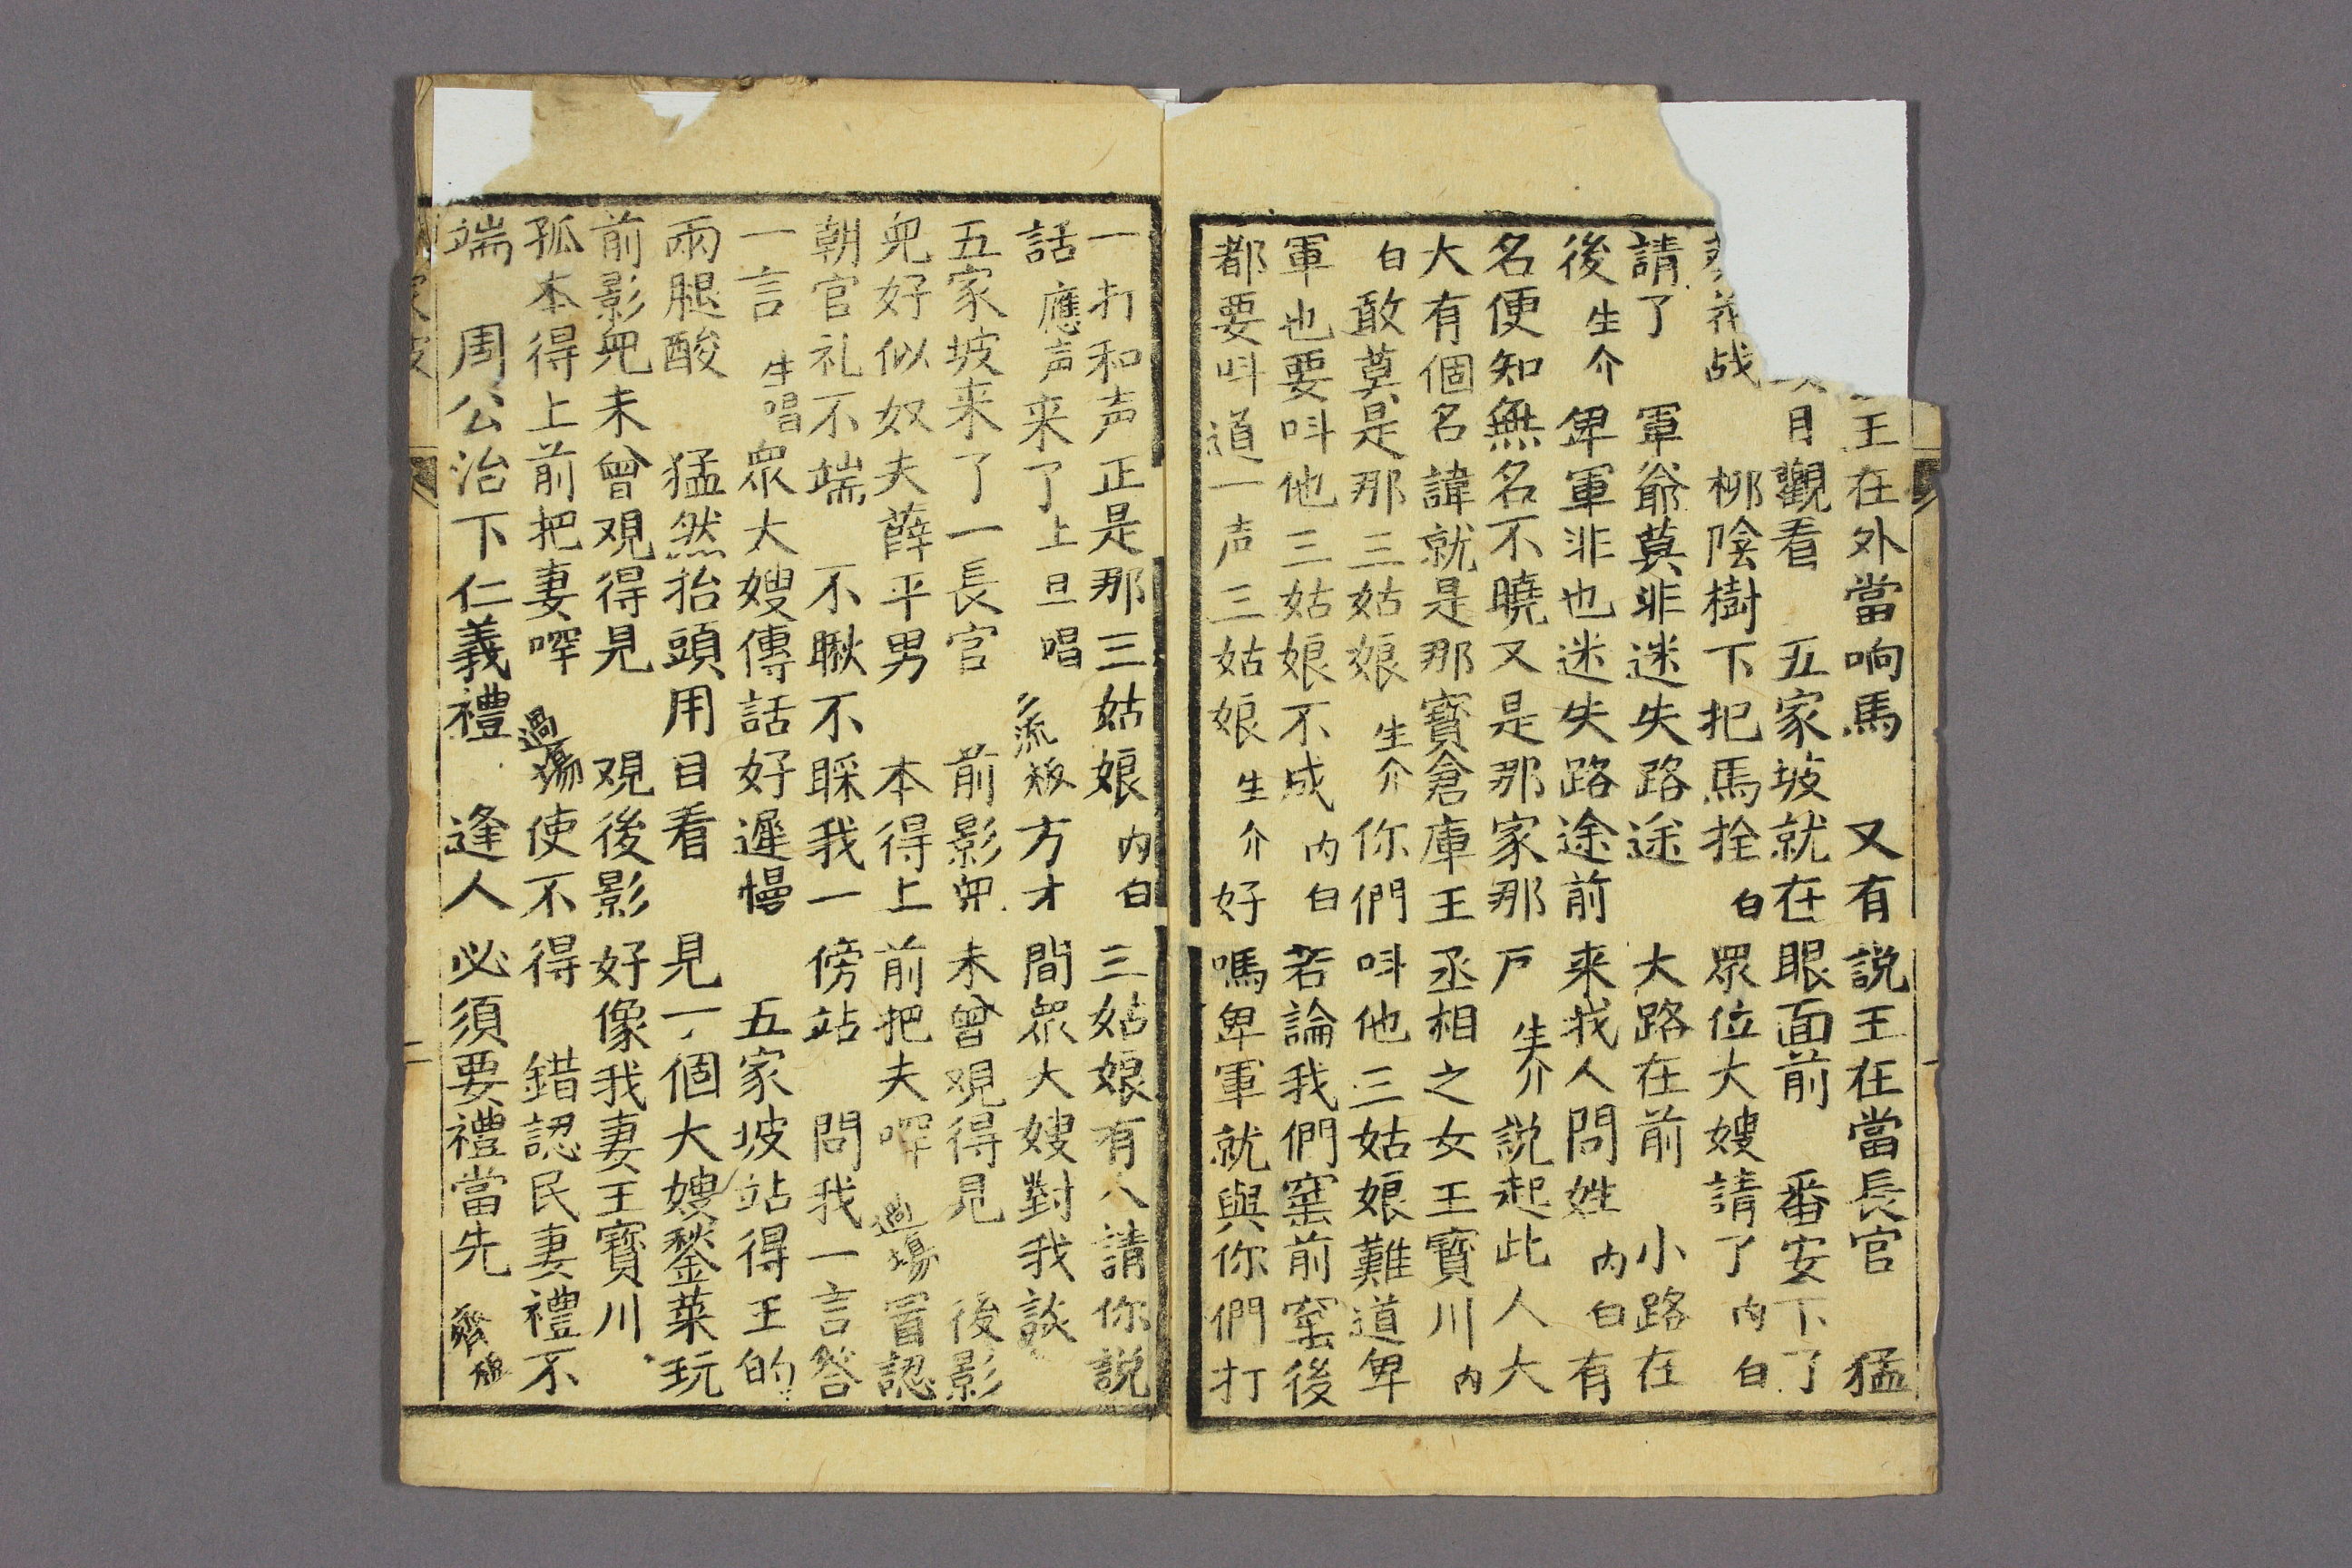 王在外當响馬　又有説王在當長官　猛
月觀看　五家坡就在眼面前　番安下了
战　柳陰樹下把馬拴　白　眾位大嫂請了　内白
請了　軍爺莫非迷失路途　大路在前　小路在
後　生介　卑軍非也迷失路途前来我人問姓　内白　有
名便知無名不曉又是那家那戸　生介　説起此人大
大有個名諱就是那寳倉庫王丞相之女王寳川　内
白　敢莫是那三姑娘　生介　你們呌他三姑娘難道卑
軍也要呌他三姑娘不成　内白　若論我們窰前窰後
都要呌道一声三姑娘　生介　好嗎卑軍就與你們打
一打和声正是那三姑娘　内白　三姑娘有人請你説
話　應声　来了　上旦唱　流板　方才間眾大嫂對我談
五家坡来了一長官　前影兒未曾观得見　後影
兒好似奴夫薛平男　本得上前把夫喥　過場　冒認
朝官礼不端　不瞅不睬我一傍站　問我一言答
一言　生唱　眾大嫂傳話好遲慢　五家坡站得王的
兩腿酸　猛然抬頭用目看　見一個大嫂鍫菜玩
前影兒未曾观得見　观後影好像我妻王寳川
孤本得上前把妻喥　過場　使不得　錯認民妻禮不
端　周公治下仁義禮　逢人必須要禮當先